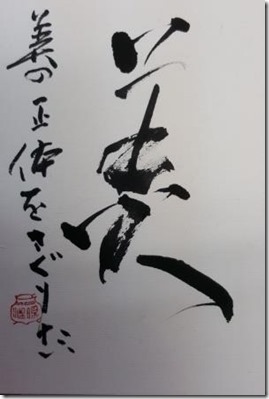 美
美の正体をさぐりたい